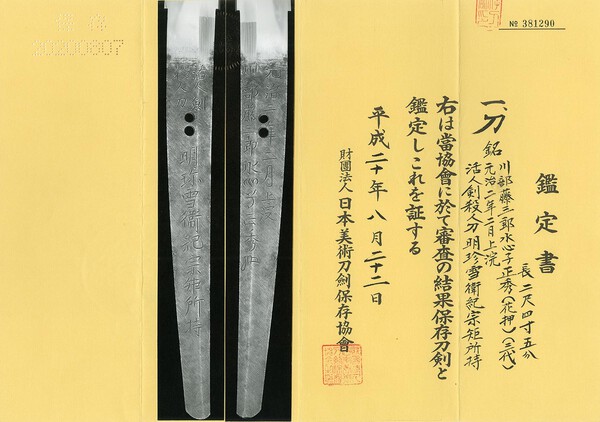 № 381290
鑑定書
一、刀
長 二尺四寸五分
銘
川部藤三郎水心子正秀(花押)(三代)
元治二年二月上浣
活人剣殺人刀明珍雪衛紀宗矩所持
右は當協會に於て審査の結果保存刀剣と
鑑定しこれを証する
平成二十年八月二十二日
財團法人日本美術刀劍保存協會
保存
20200807